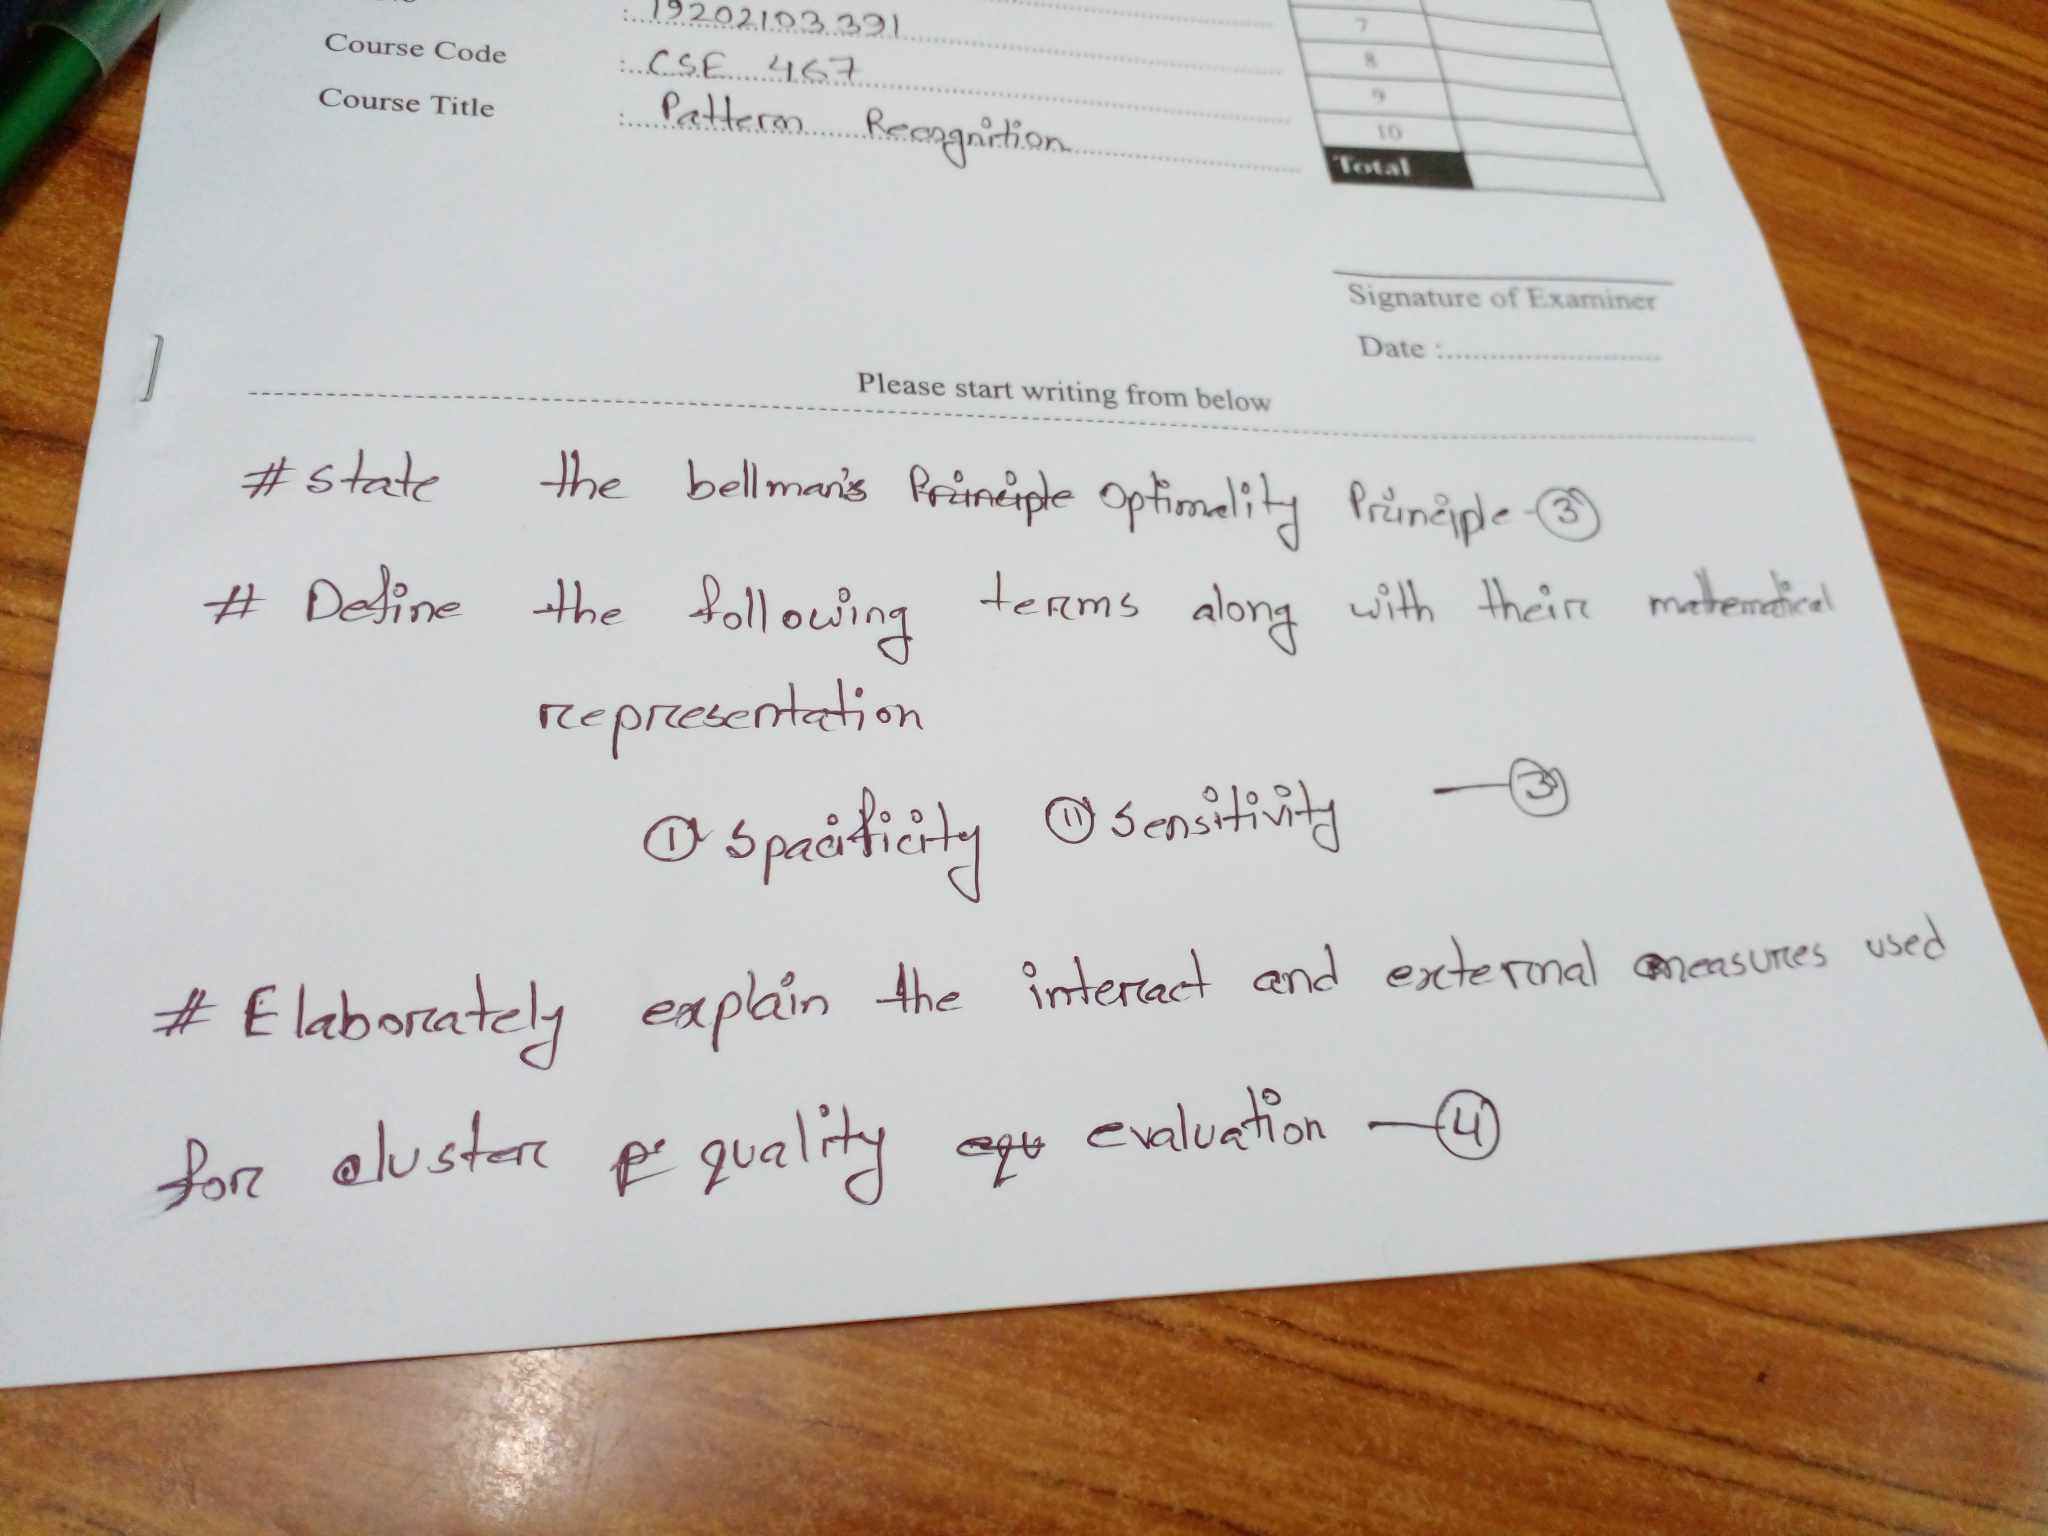 : 19202103391
Course Code : CSE 467
Course Title : Pattern Recognition
7
8
9
10
Total
Signature of Examiner
Date :
Please start writing from below
# State the bellman's Principle Optimality Principle - 3
# Define the following terms along with their mathematical
representation
i Spacificity ii Sensitivity — 3
# Elaborately explain the interact and external measures used
for cluster quality equ evaluation — 4